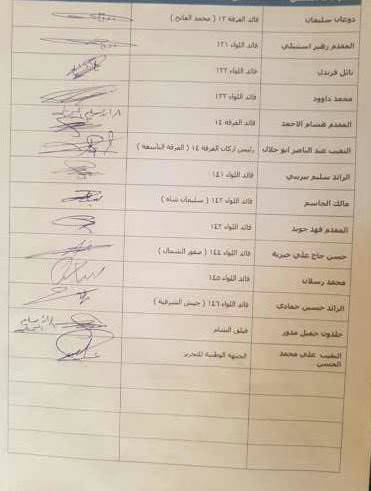 دوغان سليمان قائد الفرقة ١٢ ( محمد الفاتح )
المقدم زهير اسنبلي قائد اللواء ١٢١
نائل فرندل قائد اللواء ١٢٢
محمد داوود قائد اللواء ١٢٣
المقدم هشام الاحمد قائد الفرقة ١٤
النقيب عبد الناصر ابو جلال رئيس اركان الفرقة ١٤ ( الفرقة التاسعة )
الرائد سليم بيريني قائد اللواء ١٤١
مالك الجاسم قائد اللواء ١٤٢ ( سليمان شاه )
المقدم فهد جويد قائد اللواء ١٤٣
حسن حاج علي خيرية قائد اللواء ١٤٤ ( صقور الشمال )
محمد رسلان قائد اللواء ١٤٥
الرائد حسين حمادي قائد اللواء ١٤٦ ( جيش الشرقية )
خلدون جميل مدور فيلق الشام
النقيب علي محمد الجبهة الوطنية للتحرير
الحسن